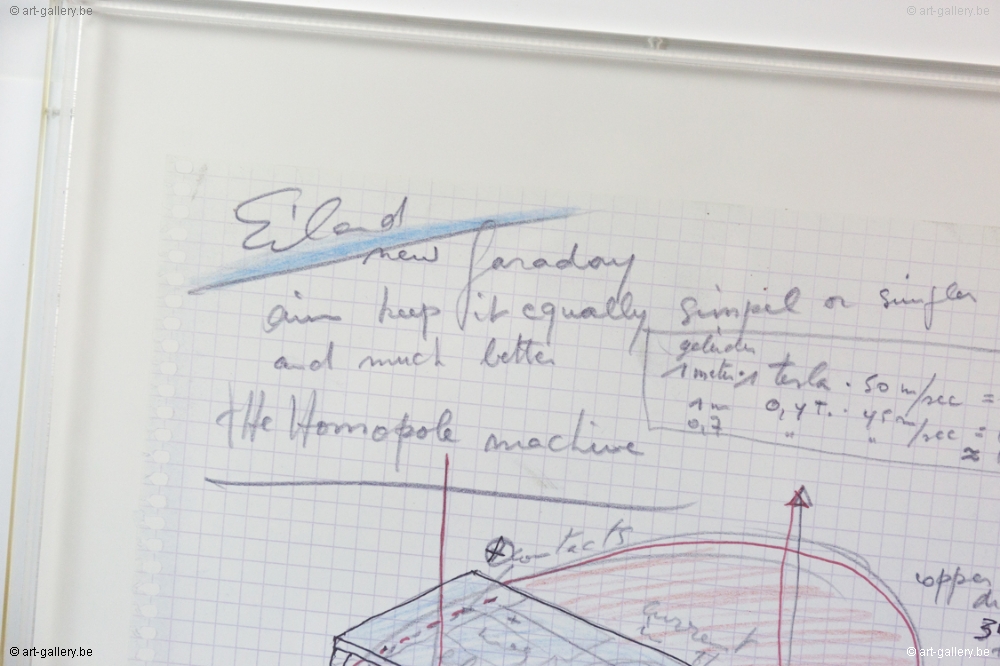 © art-gallery.be
© art-gallery.be
Eiland
new faraday
aim keep it equally simpel or simpler
and much better
geleider
1 meter · 1 tesla · 50 m/sec =
1 m 0,4 T. · 45 m/sec =
0,7 " " ≈
tHe Homopole machine
contacts
current
© art-gallery.be
© art-gallery.be